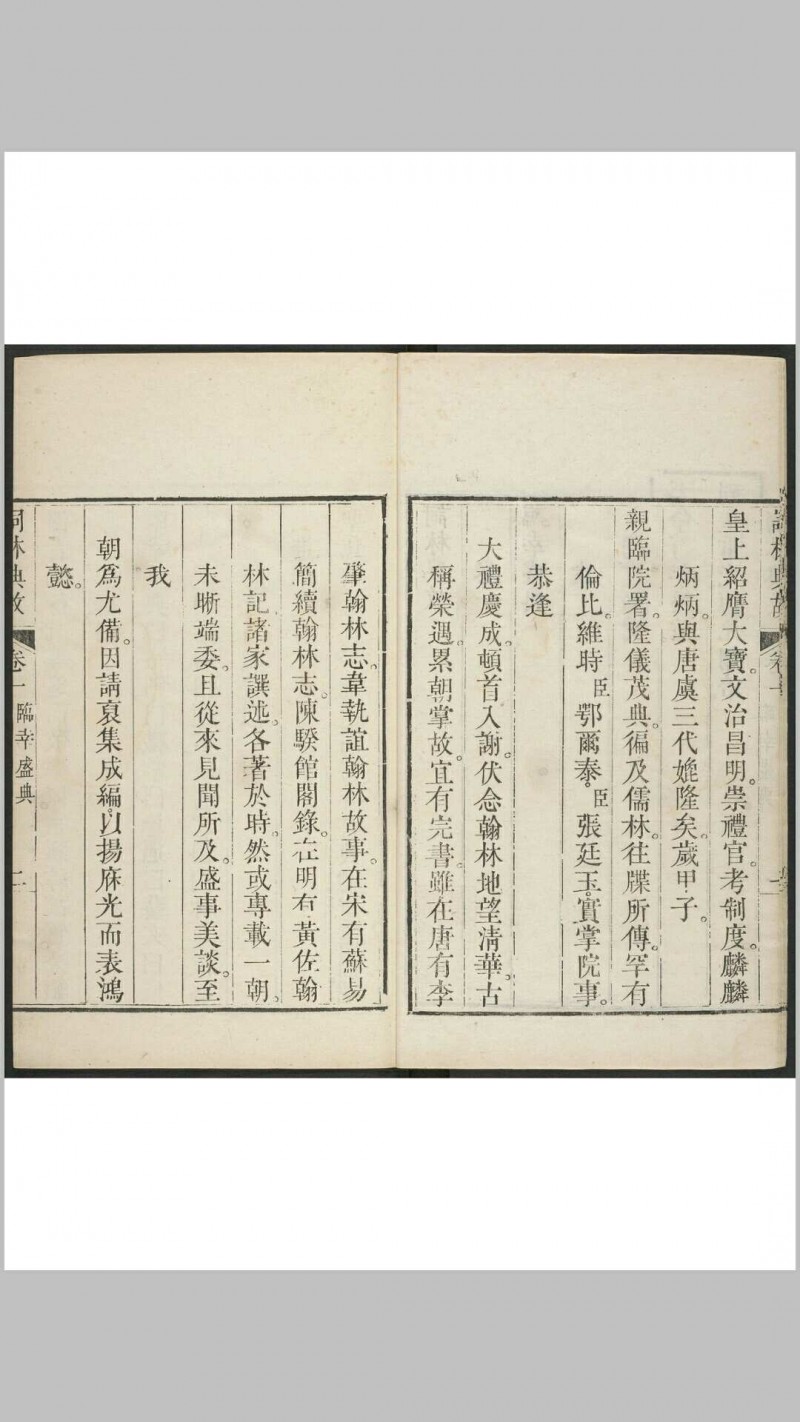 皇上紹膺大寶。文治昌明。崇禮官。考制度。麟麟
炳炳。與唐虞三代媲隆矣。歲甲子。
親臨院署。隆儀茂典。徧及儒林。往牒所傳。罕有
倫比。維時臣鄂爾泰。臣張廷玉。實掌院事。
恭逢
大禮慶成。頓首入謝。伏念翰林地望清華。古
稱榮遇。累朝掌故。宜有完書。雖在唐有李
肇翰林志。韋執誼翰林故事。在宋有蘇易
簡續翰林志。陳騤館閣錄。在明有黃佐翰
林記諸家譔述。各著於時。然或專載一朝。
未晰端委。且從來見聞所及。盛事美談。至
我
朝爲尤備。因請裒集成編。以揚庥光而表鴻
懿。
詞林典故 卷一 臨幸盛典 二